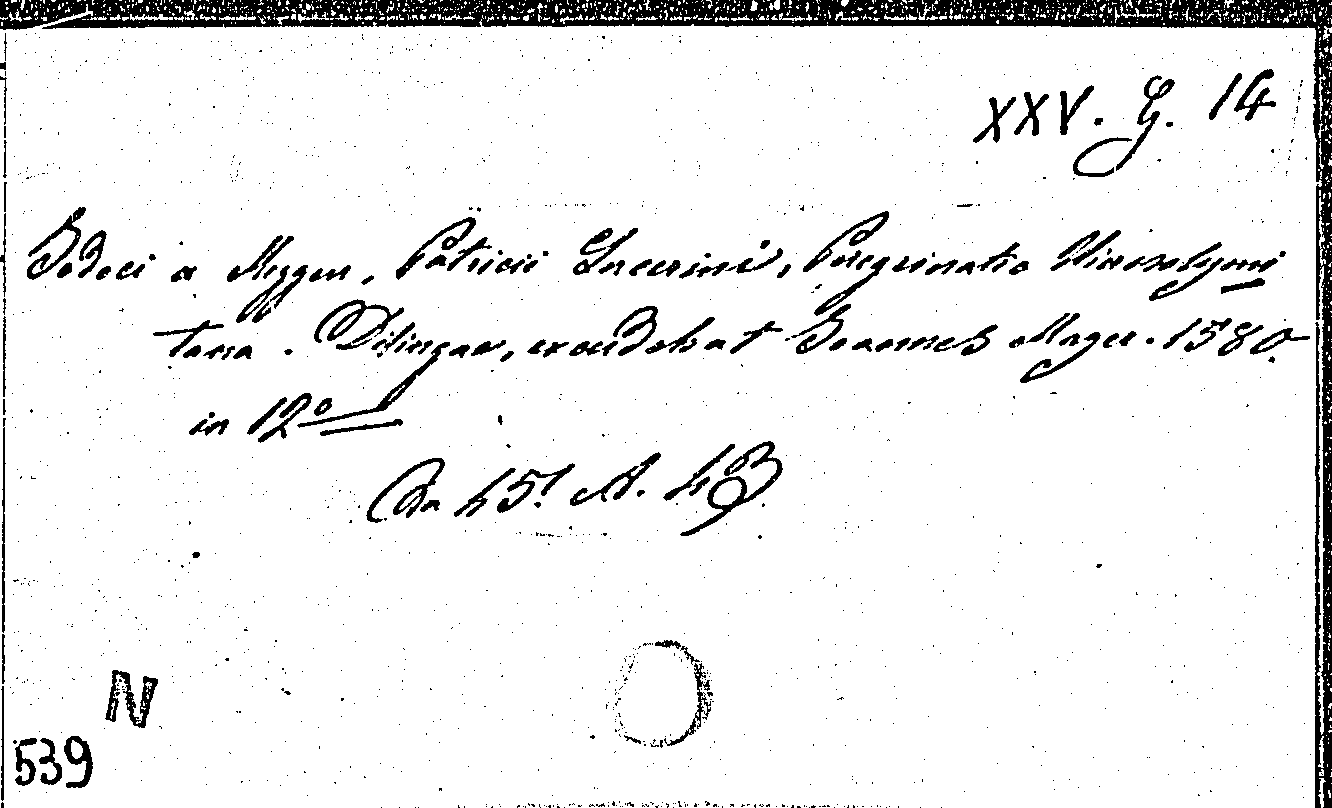 XXV. G. 14
Jodoci a Meggen, Patricii Lucerini, Peregrinatio Hierosolymi
tana. Dilingae, excudebat Joannes Mayer. 1580.
in 12º
45. A. 43
N
539